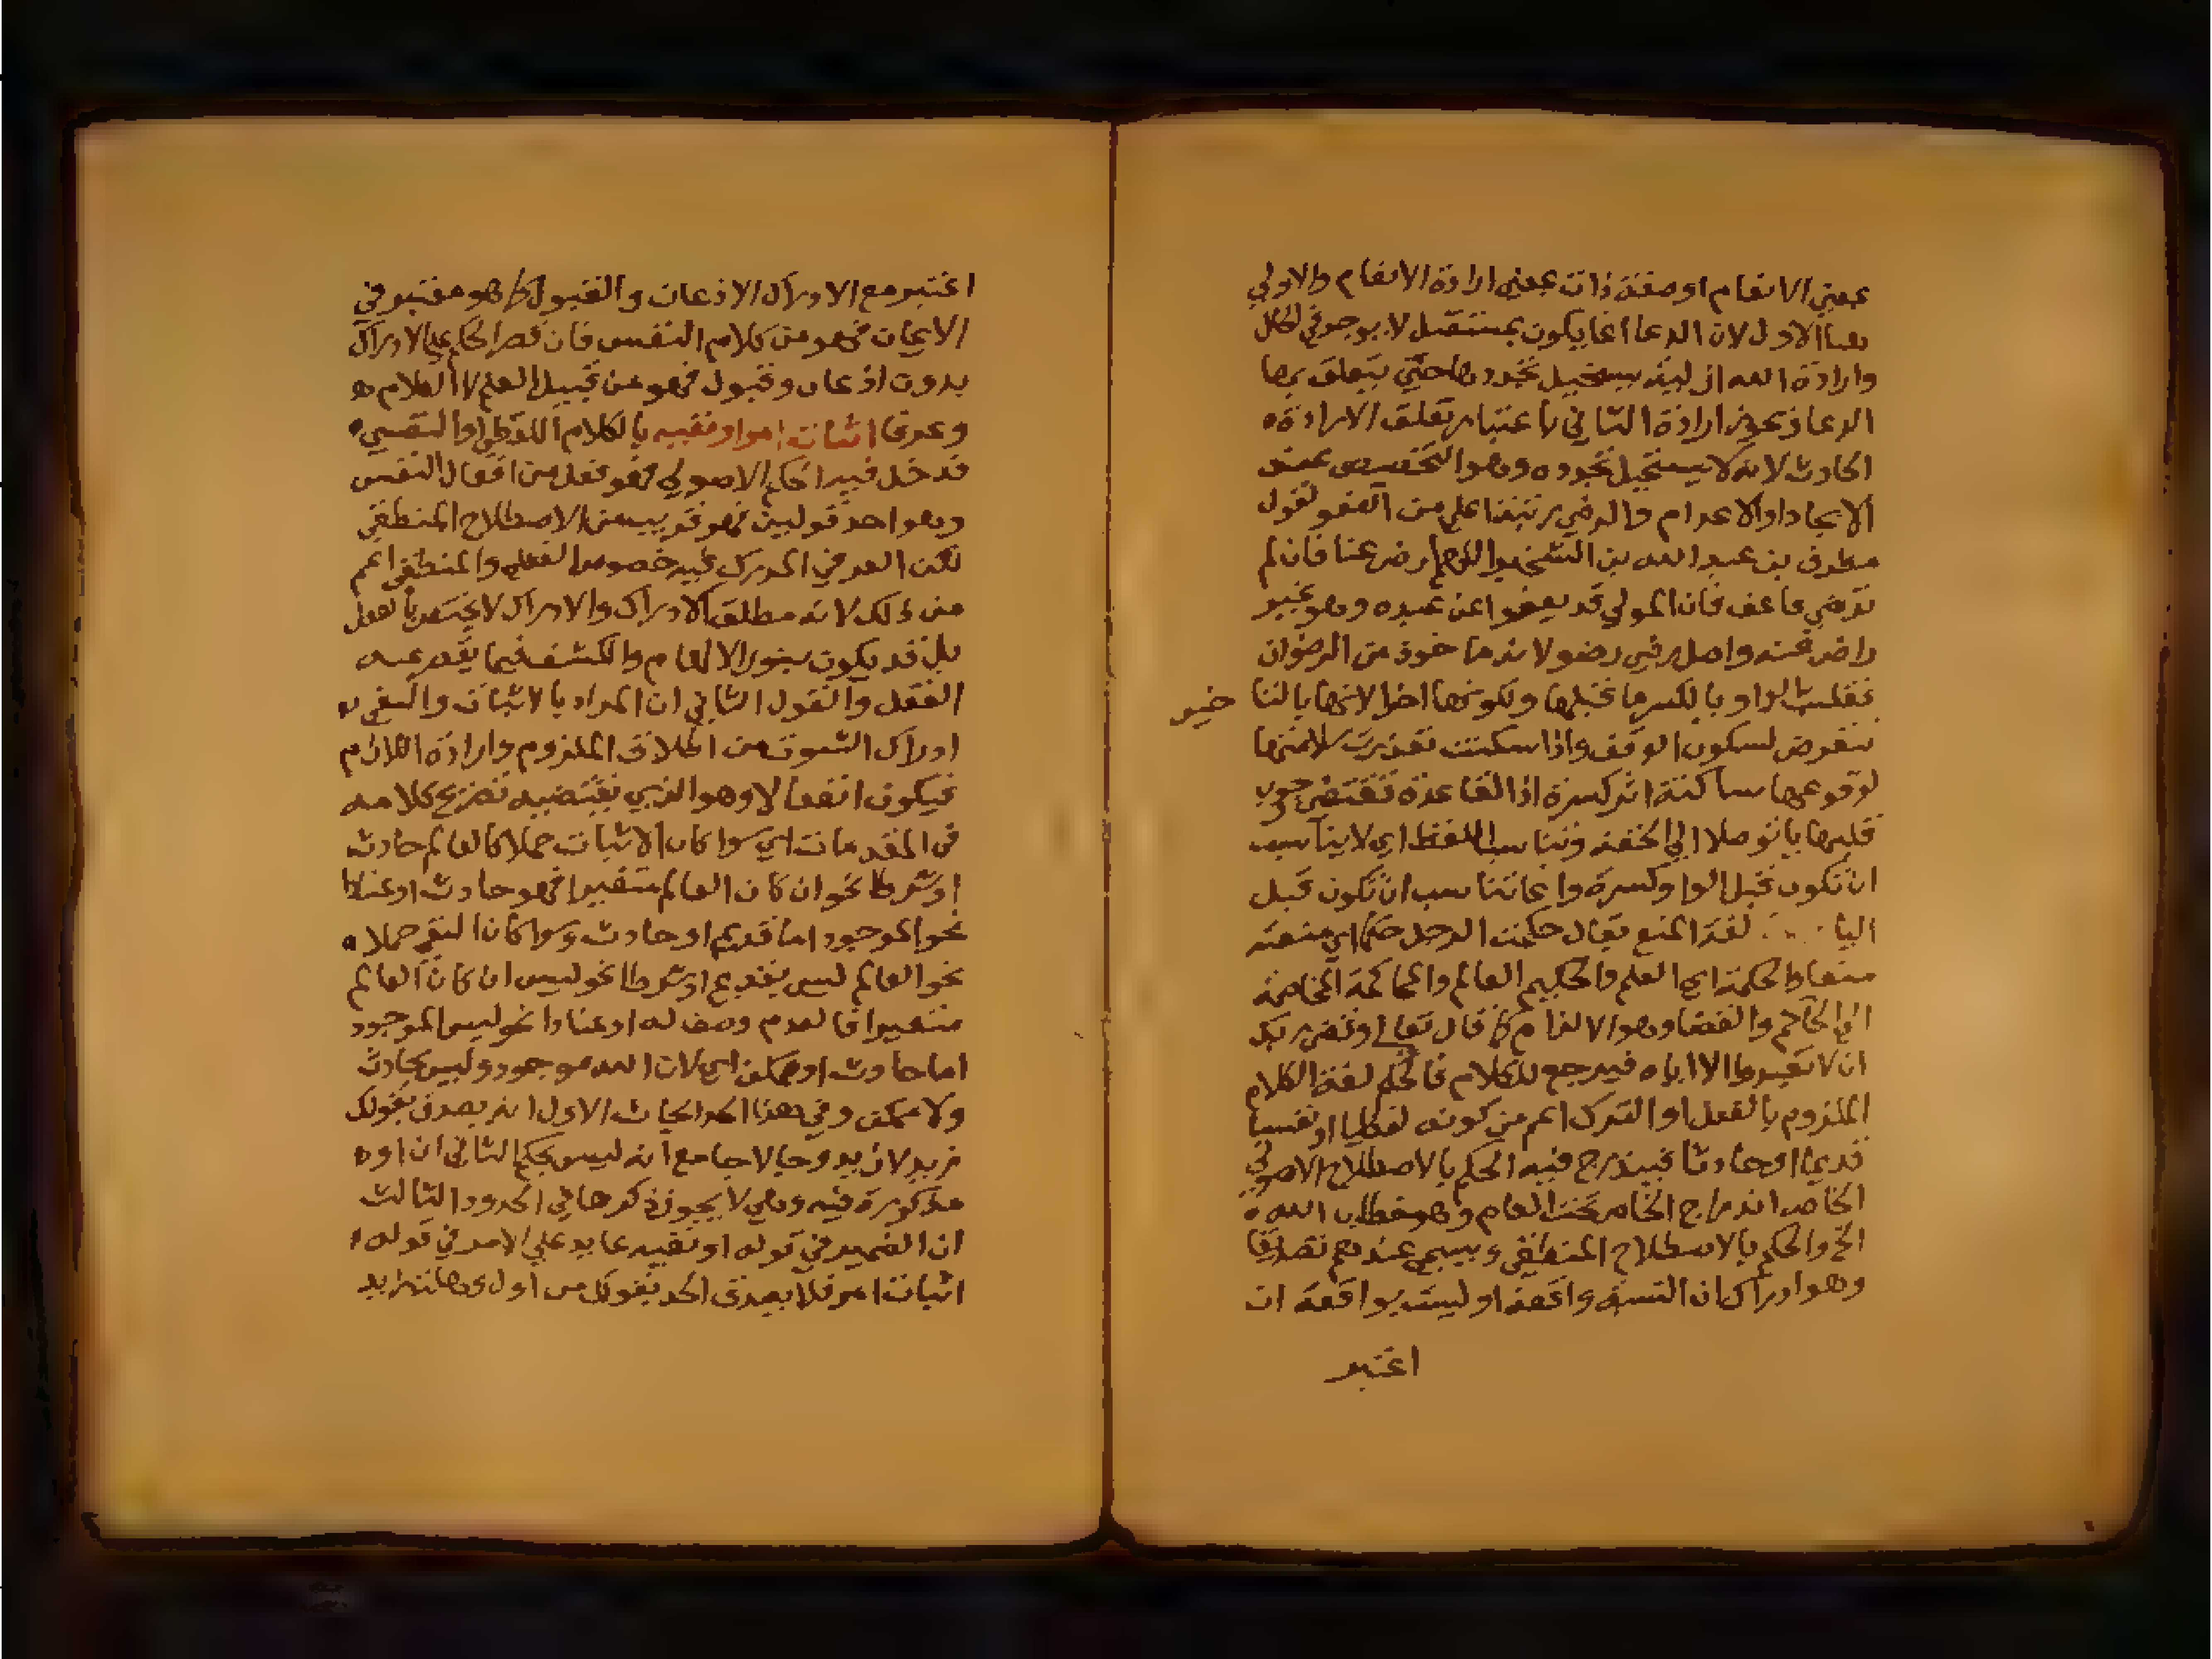 بمعني الانعام او صفة ذات بمعني ارادة الانعام والاولي
هنا الاول لان الدعا انما يكون بمستقبل لا يوجد في الحال
وارادة الله ازلية يستحيل تجددها حتي يتعلق بها
الدعا ارادة الثاني باعتبار تعلق الارادة
الحادث لانه لا يستحيل تجدده وهو التخصيص
الايجاد او الاعدام والرضي من العفو لقول
مطرف بن عبد الله بن الشخير اللهم ارض عنا فان لم
ترضي فاعف فان المولي قد يعفوا عن عبده وهو غير
راض عنه واصل رضي رضو لانه ماخوذ من الرضوان
فقلبت الواو يا لكسر ما قبلها ولكونها اخرا لانها بالتا
خير
تتعرض لسكون الوقف واذا سكنت تعذرت سلامتها
لوقوعها ساكنة اثر كسرة اذ القاعدة تقتضي وجوب
قلبها يا توصلا الي الخفة وتناسب اللفظ اي لا يناسب
ان تكون قبل الواو كسرة وانما تناسب ان تكون قبل
اليا لغة المنع يقال حكمت الرجل حكما اي منعته
الحكمة اي العلم والحكيم العالم والمحاكمة المخاصمة
الي الحاكم والقضا وهو الالزام كما قال تعالي وقضي ربك
ان لا تعبدوا الا اياه فيرجع للكلام فالحكم لغة الكلام
الملزوم بالفعل او الترك اعم من كونه لفظيا او نفسيا
قديما او حادثا فيندرج فيه الحكم بالاصطلاح الاصولي
الخاص اندراج الخاص تحت العام وهو خطاب الله
الخ والحكم بالاصطلاح المنطقي ويسمي عندهم تصديقا
وهو ادراك ان النسبة واقعة او ليست بواقعة ان
اعتبر
اعتبر مع الادراك الاذعان والقبول كما هو معتبر في
الايمان فهو من كلام النفس فان قصر الحكم علي الادراك
بدون اذعان وقبول فهو من قبيل العلم لا الكلام
وعرفا اثبات امر او نفيه بالكلام اللفظي او النفسي
فدخل فيه الحكم الاصولي فهو فعل من افعال النفس
وهو احد قولين فهو قريب من الاصطلاح المنطقي
لكن العرفي المدرك فيه خصوص العقل والمنطقي اعم
من ذلك لانه مطلق الادراك والادراك لا يختص بالعقل
بل قد يكون بنور الالهام والكشف فيما يقصر عنه
العقل والقول الثاني ان المراد بالاثبات والنفي
ادراك الثبوت من اطلاق الملزوم وارادة اللازم
فيكون انفعالا وهو الذي يقتضيه تصريح كلامه
في المقدمات اي سوا كان الاثبات حملا كالعالم حادث
او شرطا نحو ان كان العالم متغيرا فهو حادث او عنادا
نحو الموجود اما قديم او حادث وسوا كان النفي حملا
نحو العالم ليس بقديم او شرطا نحو ليس ان كان العالم
متغيرا فالعدم وصف له او عنادا نحو ليس الموجود
اما حادث او ممكن اي لان الله موجود وليس بحادث
ولا ممكن وفي هذا الحد ابحاث الاول انه يصدق بقولك
زيد لان يد وحيا لاجامع انه ليس بحكم الثاني ان او
مذكورة فيه وهي لا يجوز ذكرها في الحدود الثالث
ان الضمير في قوله او نفيه عايد علي الامر في قوله
اثبات امر فلا يصدق الحد بقولك من اول وهلة زيد